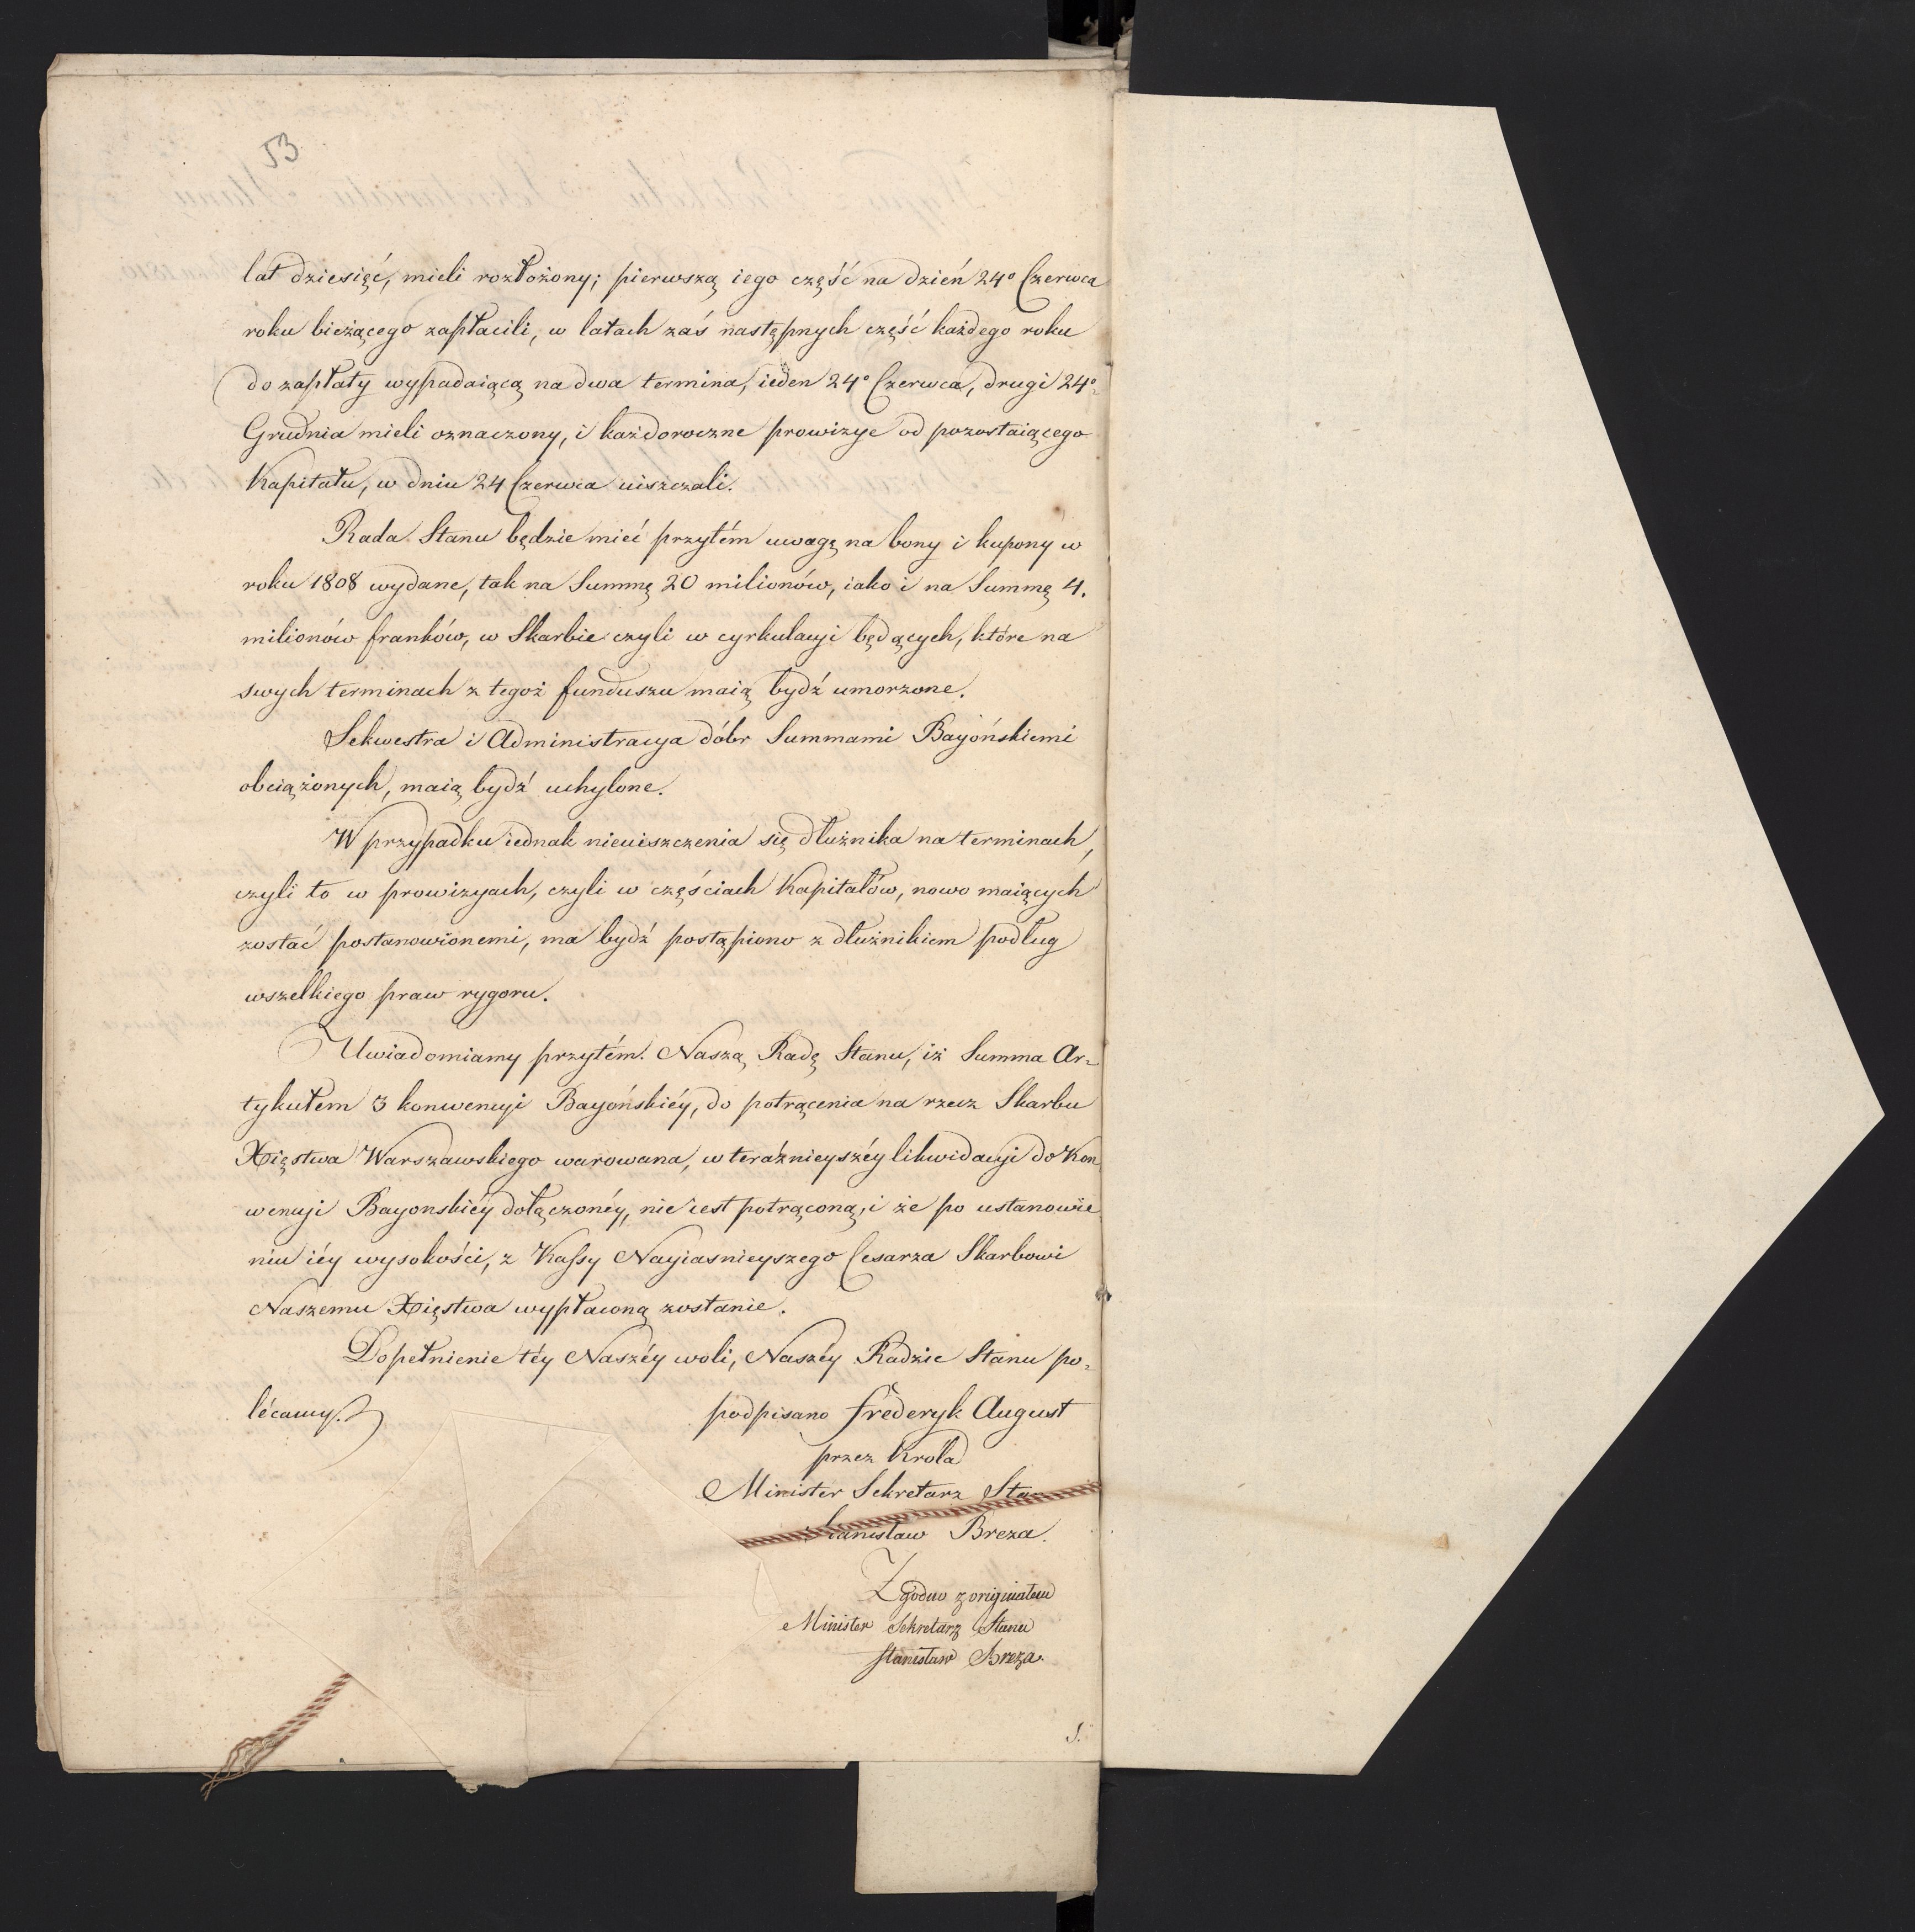 53
lat dziesięć, mieli rozłożony; pierwszą iego część na dzień 24° Czerwca
roku bieżącego zapłacili, w latach zaś następnych część każdego roku
do zapłaty wypadaiącą na dwa termina, ieden 24° Czerwca, drugi 24°
Grudnia mieli oznaczony, i każdoroczne prowizye od pozostaiącego
Kapitału, w dniu 24 Czerwca uiszczali.
Rada Stanu będzie mieć przytém uwagę na bony i kupony w
roku 1808 wydane, tak na Summę 20 milionów, iako i na Summę 4.
milionów franków, w Skarbie czyli w cyrkulacyi będących, które na
swych terminach z tegoż funduszu maią bydź umorzone.
Sekwestra i Administracya dóbr Summami Bayońskiemi
obciążonych, maią bydź uchylone.
W przypadku iednak nieuiszczenia się dłużnika na terminach,
czyli to w prowizyach, czyli w częściach Kapitałów, nowo maiących
zostać postanowionemi, ma bydź postąpiono z dłużnikiem podług
wszelkiego praw rygoru.
Uwiadomiamy przytém Naszą Radę Stanu, iż Summa Ar-
tykułem 3 konwencyi Bayońskiéy, do potrącenia na rzecz Skarbu
Xięstwa Warszawskiego warowana, w teraźnieyszéy likwidacyi do Kon
wencyi Bayonskiéy dołączonéy, nie iest potrąconą, i że po ustanowie
niu iéy wysokości, z Kassy Nayiasnieyszego Cesarza Skarbowi
Naszemu Xięstwa wypłaconą zostanie.
Dopełnienie téy Naszéy woli, Naszéy Radzie Stanu po-
lécamy.
podpisano Frederyk August
przez Krola
Minister Sekretarz Sta
Stanisław Breza.
Zgodno z originałem
Minister Sekretarz Stanu
Stanisław Breza.
S.